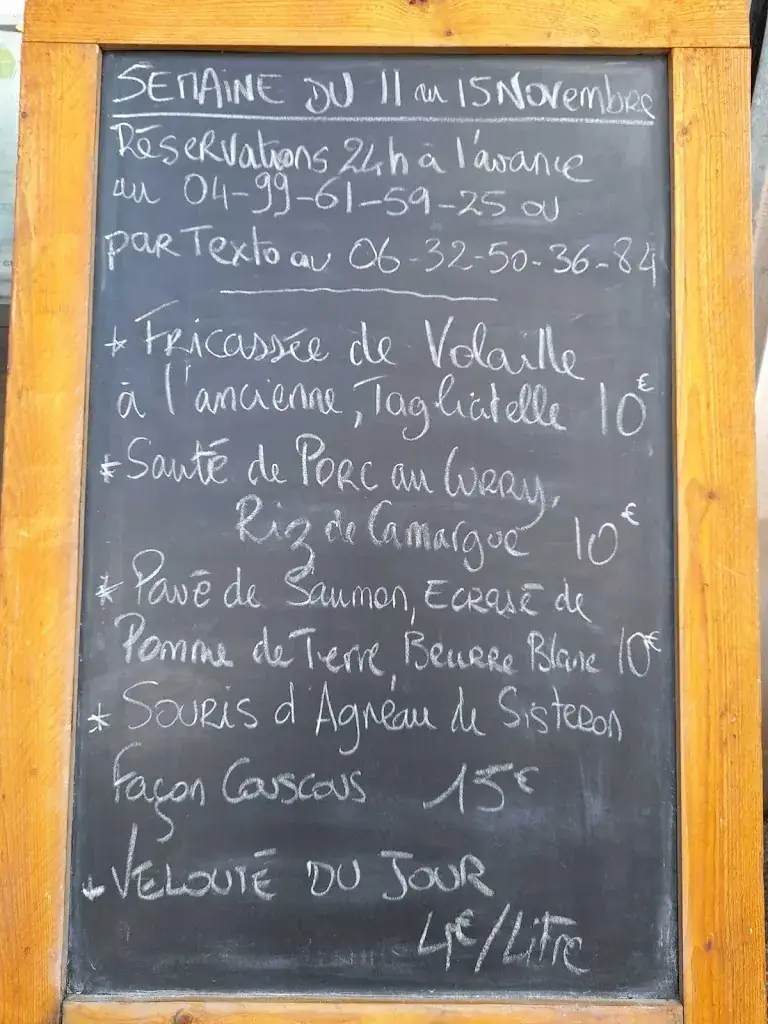 SEMAINE DU 11 au 15 Novembre
Réservations 24h à l'avance
au 04-99-61-59-25 ou
par Texto au 06-32-50-36-84
* Fricassée de Volaille
à l'ancienne, Tagliatelle 10€
* Sauté de Porc au Curry,
Riz de Camargue 10€
* Pavé de Saumon, Ecrasé de
Pomme de Terre, Beurre Blanc 10€
* Souris d'Agneau de Sisteron
Façon Couscous 15€
* VELOUTÉ DU JOUR
4€/Litre